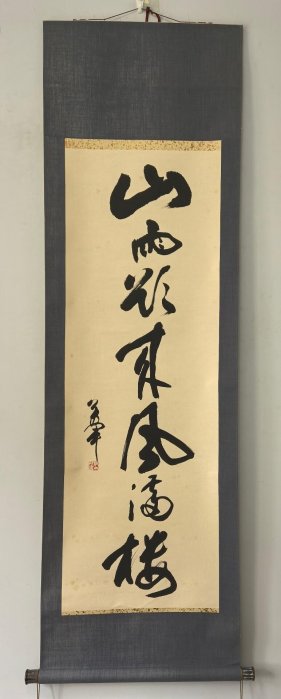 山雨欲来風満楼